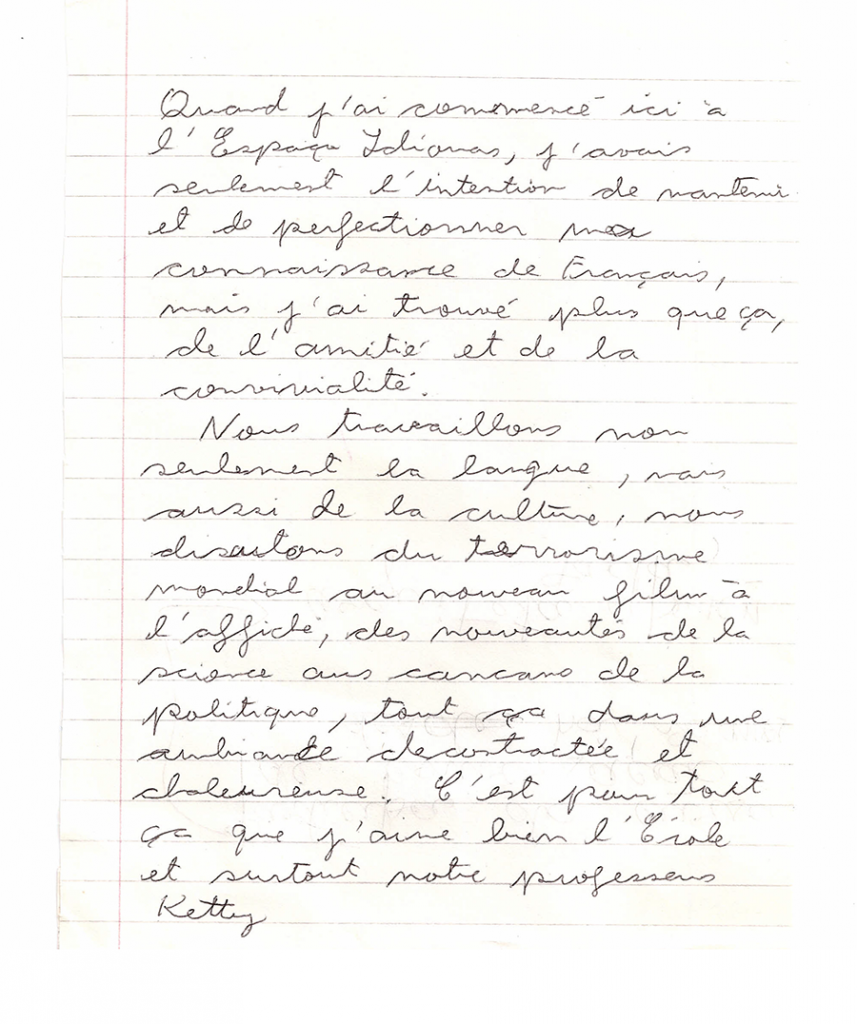 Quand j'ai commencé ici à
l'Espaço Idiomas, j'avais
seulement l'intention de mantenir
et de perfectionner mes
connaissance de Français,
mais j'ai trouvé plus que ça,
de l'amitié et de la
convivialité.
Nous travaillons non
seulement la langue, mais
aussi de la culture, nous
discutons du terrorisme
mondial au nouveau film à
l'affiche, des nouveautés de la
science aus cancans de la
politique, tout ça dans une
ambiance decontractée et
chaleureuse. C'est pour tout
ça que j'aime bien l'École
et surtout notre professeus
Ketty